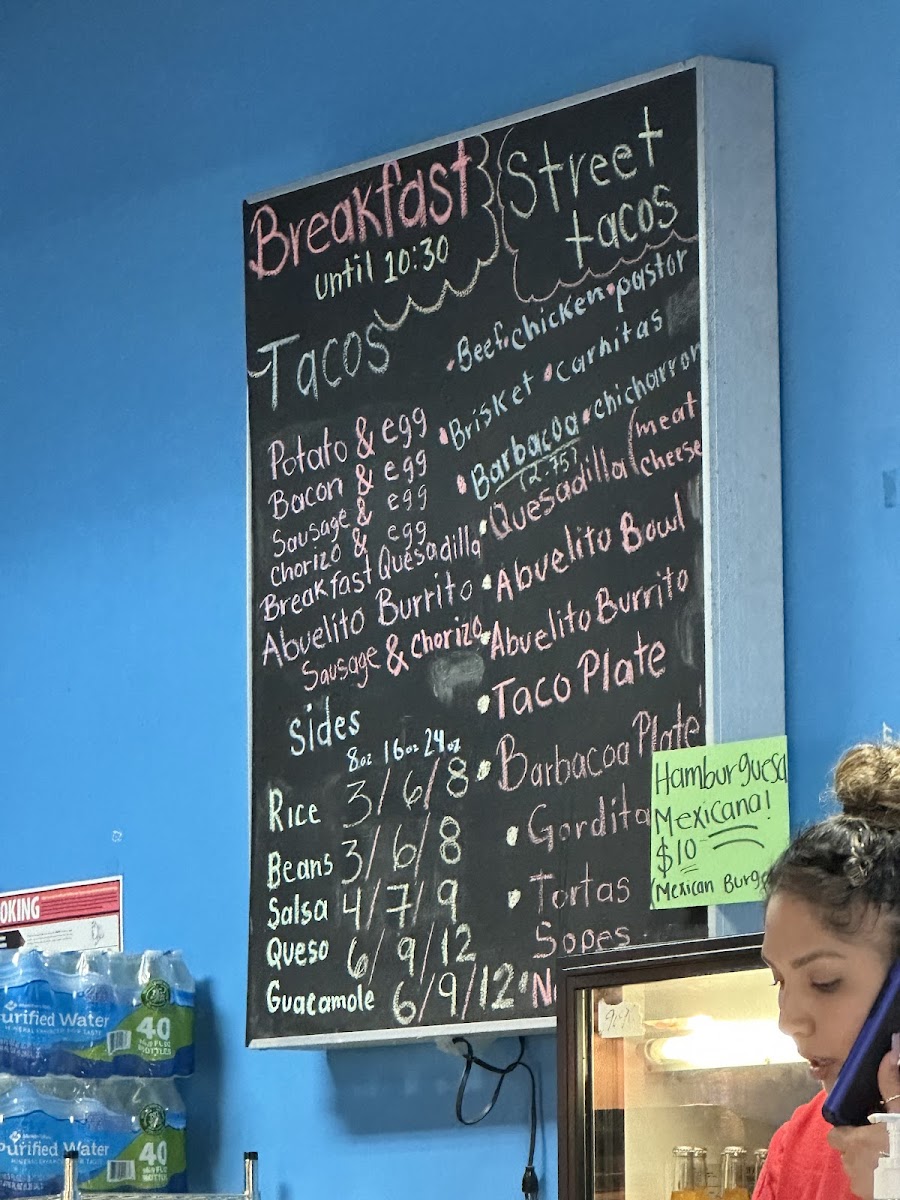 Breakfast
until 10:30
Tacos
Potato & egg
Bacon & egg
Sausage & egg
Chorizo & egg
Breakfast Quesadilla
Abuelito Burrito
Sausage & Chorizo
Sides
8oz 16oz 24oz
Rice 3/6/8
Beans 3/6/8
Salsa 4/7/9
Queso 6/9/12
Guacamole 6/9/12
Street
tacos
•Beef•chicken•pastor
•Brisket •carnitas
•Barbacoa •chicharron
(2.75)
•Quesadilla (meat
cheese
•Abuelito Bowl
•Abuelito Burrito
•Taco Plate
•Barbacoa Plate
•Gordita
•Tortas
Sopes
Hamburguesa
Mexicana!
$10
(Mexican Burge
OKING
urified Water
40
BOTTLES
Purified Water
40